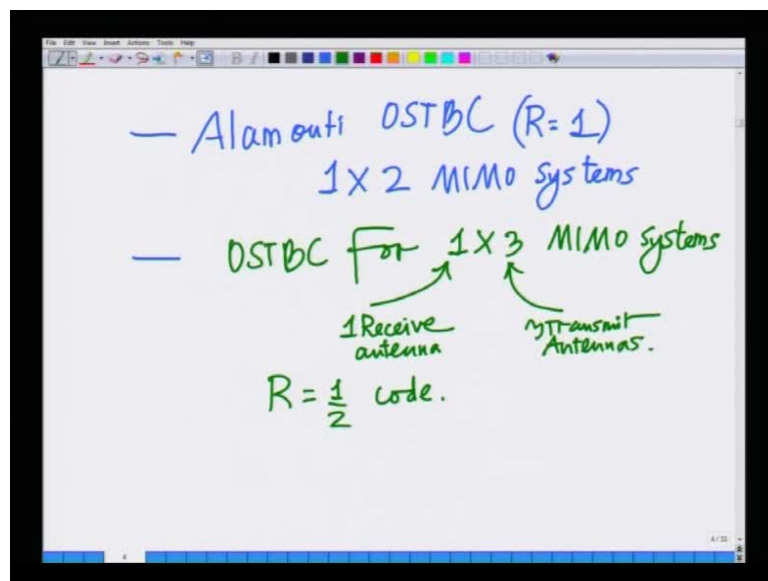 File Edit View Insert Actions Tools Help
— Alamouti OSTBC (R=1)
1X2 MIMO Systems
— OSTBC For 1X3 MIMO Systems
1 Receive antenna
Transmit Antennas.
R = 1/2 code.